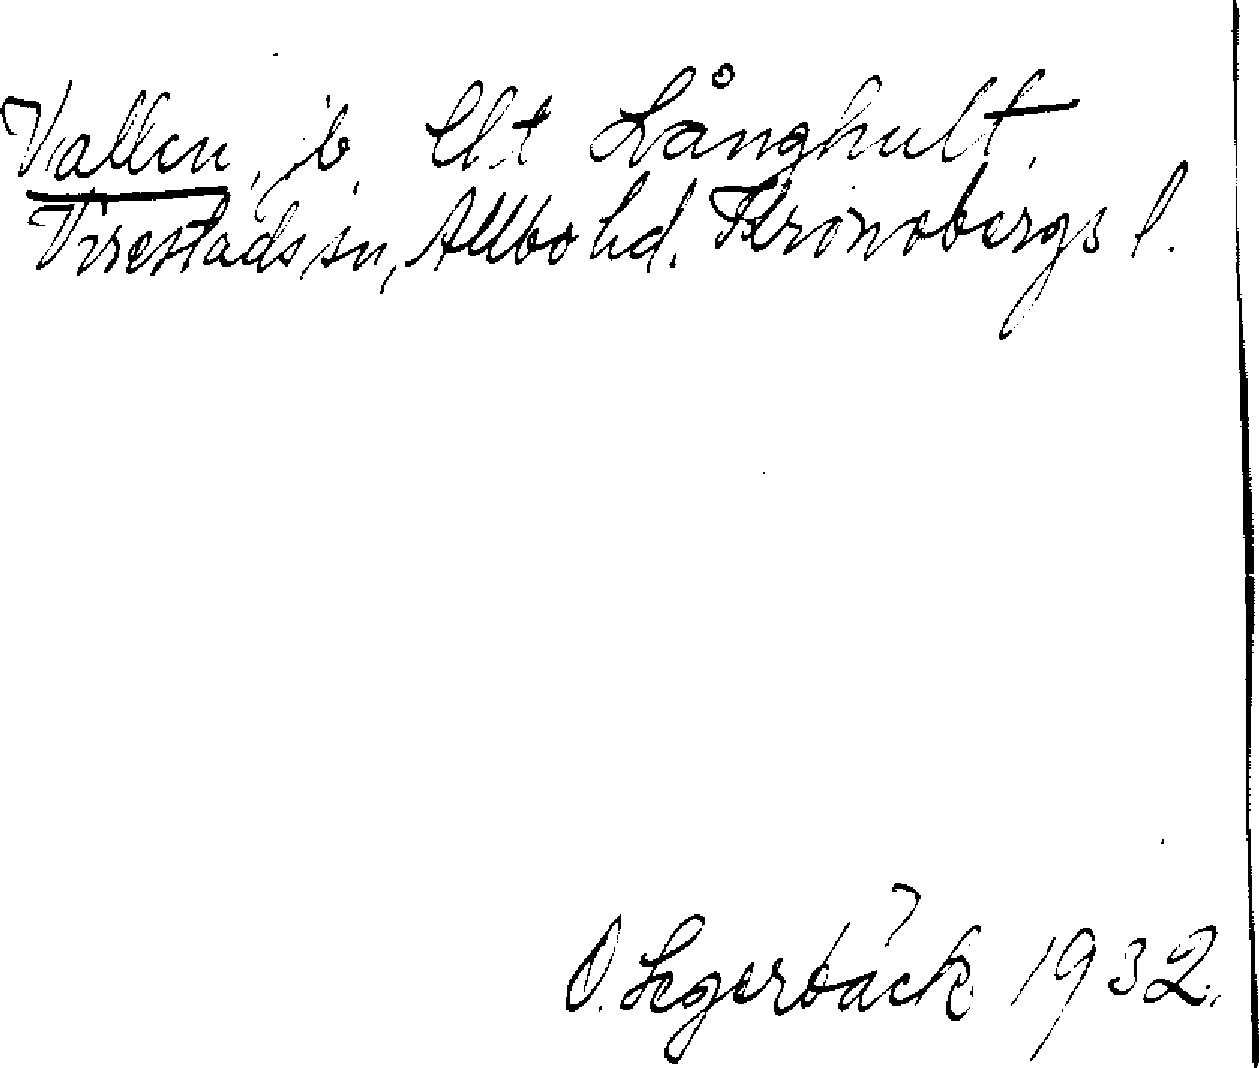 Vallen, jb. Elt Långhult,
Virestads sn, Allbo hd. Kronobergs l.
O. Segerbäck 1932.